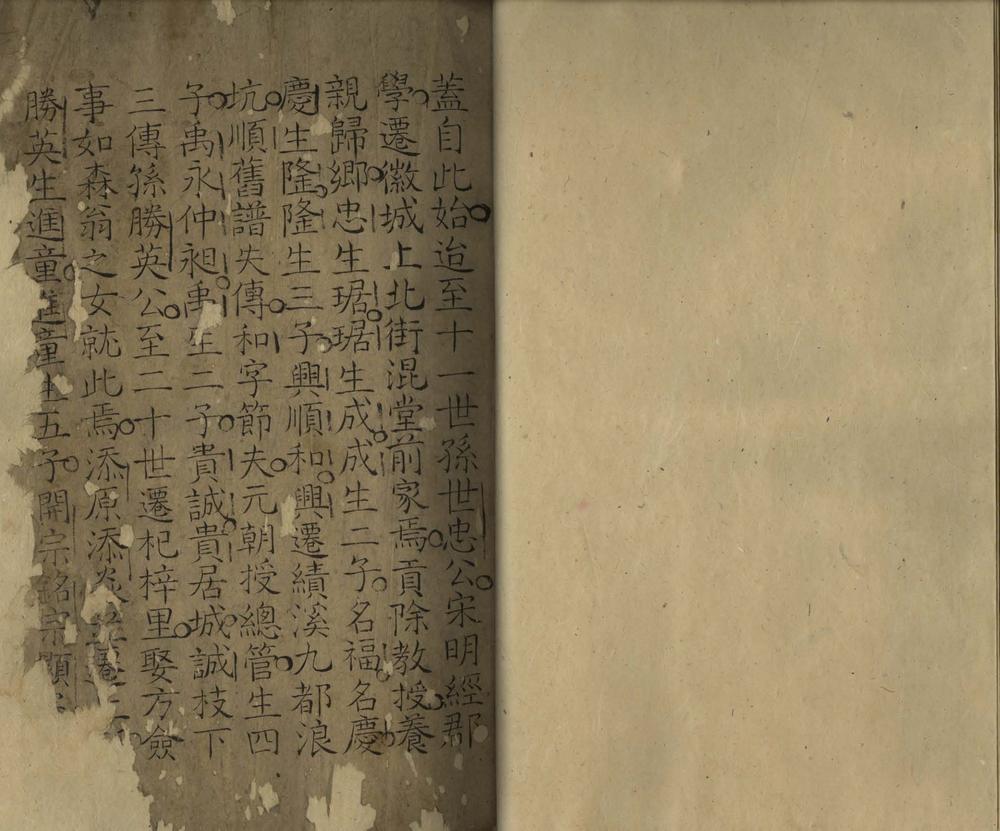 蓋自此始迨至十一世孫世忠公宋明經郡
學遷徽城上北街混堂前家焉貢除教授養
親歸鄉忠生琚琚生成成生二子名福名慶
慶生隆隆生三子興順和興遷績溪九都浪
坑順舊譜失傳和字節夫元朝授總管生四
子禹永仲昶禹生二子貴誠貴居城誠枝下
三傳孫勝英公至二十世遷杞梓里娶方僉
事如森翁之女就此焉添原添炎遷二
勝英生進童進童生五子開宗銘宗顯